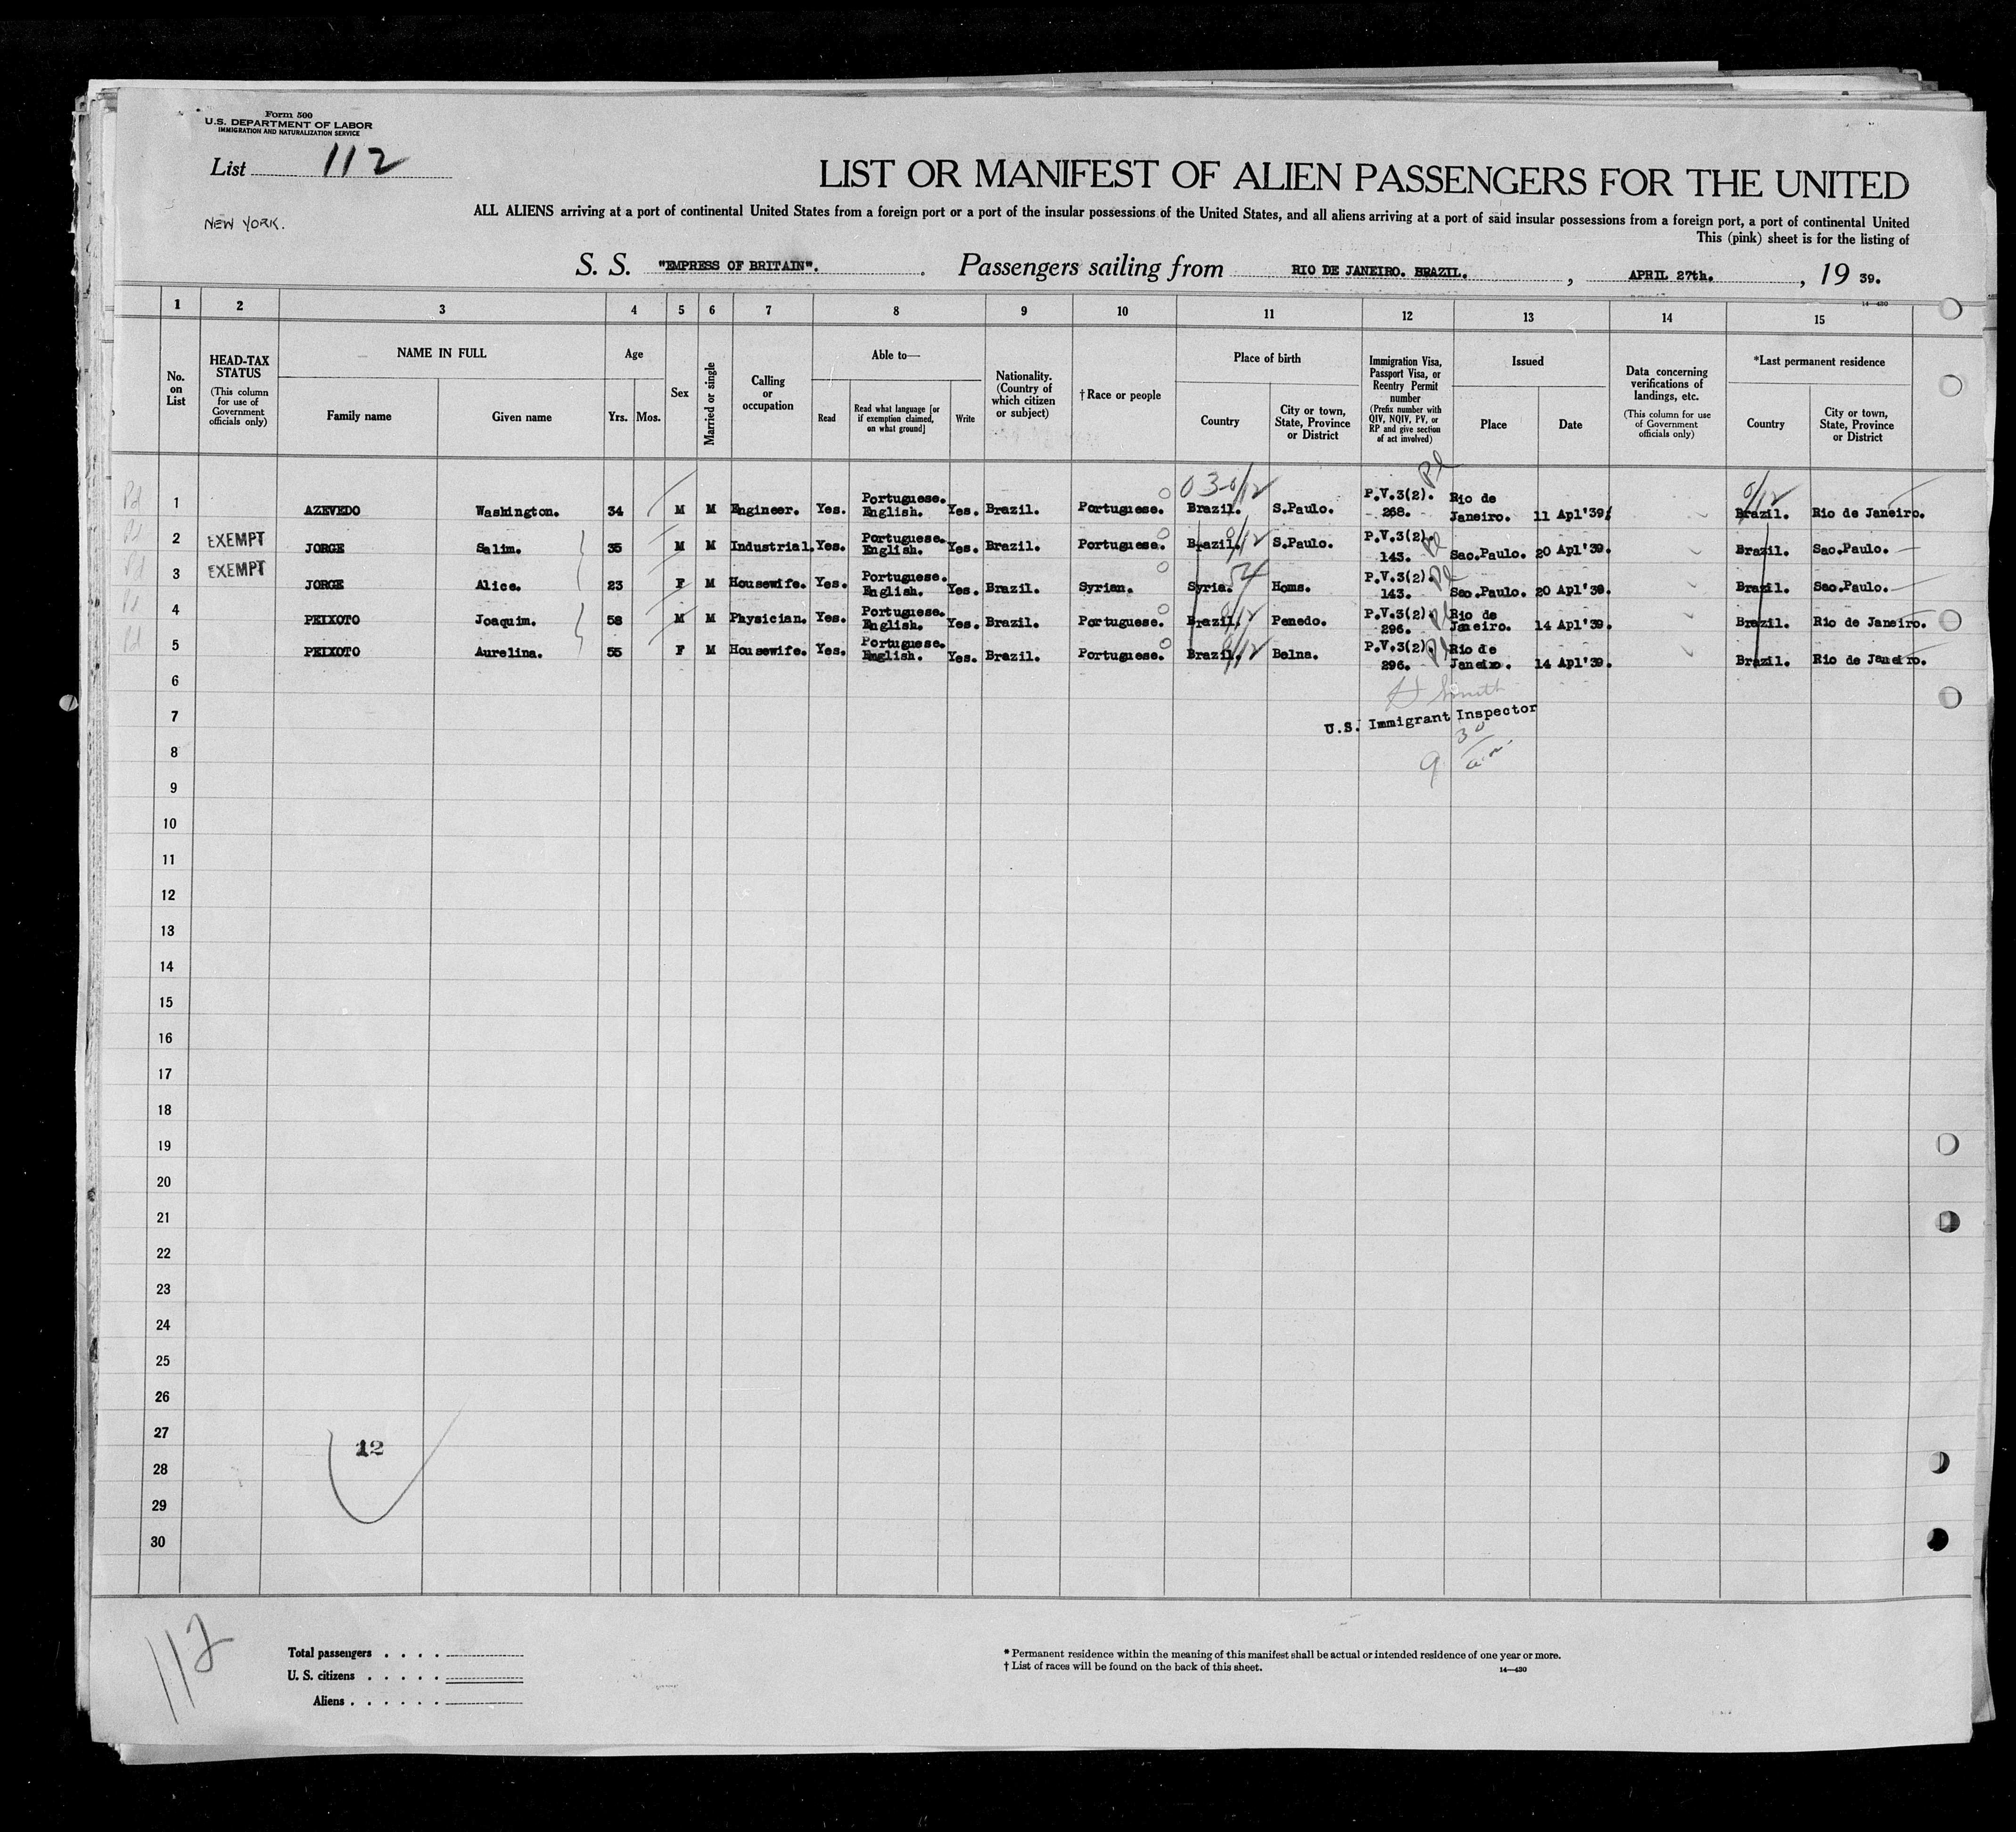 Form 500
U.S. DEPARTMENT OF LABOR
IMMIGRATION AND NATURALIZATION SERVICE
List 112
NEW YORK.
LIST OR MANIFEST OF ALIEN PASSENGERS FOR THE UNITED
ALL ALIENS arriving at a port of continental United States from a foreign port or a port of the insular possessions of the United States, and all aliens arriving at a port of said insular possessions from a foreign port, a port of continental United
This (pink) sheet is for the listing of
S. S. "EMPRESS OF BRITAIN". Passengers sailing from RIO DE JANEIRO. BRAZIL. , APRIL 27th. , 19 39.
14—430
1 2 3 4 5 6 7 8 9 10 11 12 13 14 15
No. on List
HEAD-TAX STATUS
(This column for use of Government officials only)
NAME IN FULL
Family name Given name
Age
Yrs. Mos.
Sex
Married or single
Calling or occupation
Able to—
Read
Read what language [or if exemption claimed, on what ground]
Write
Nationality. (Country of which citizen or subject)
†Race or people
Place of birth
Country
City or town, State, Province or District
Immigration Visa, Passport Visa, or Reentry Permit number
(Prefix number with QIV, NQIV, PV, or RP and give section of act involved)
Issued
Place Date
Data concerning verifications of landings, etc.
(This column for use of Government officials only)
*Last permanent residence
Country
City or town, State, Province or District
Pd 1 AZEVEDO Washington. 34 M M Engineer. Yes. Portuguese. English. Yes. Brazil. Portuguese. Brazil. S.Paulo. P.V.3(2). 268. Rio de Janeiro. 11 Apl'39. Brazil. Rio de Janeiro.
Pd 2 EXEMPT JORGE Salim. 35 M M Industrial. Yes. Portuguese. English. Yes. Brazil. Portuguese. Brazil. S.Paulo. P.V.3(2). 143. Sao.Paulo. 20 Apl'39. Brazil. Sao.Paulo.
Pd 3 EXEMPT JORGE Alice. 23 F M Housewife. Yes. Portuguese. English. Yes. Brazil. Syrian. Syria. 54 Homs. P.V.3(2). 143. Sao.Paulo. 20 Apl'39. Brazil. Sao.Paulo.
Pd 4 PEIXOTO Joaquim. 58 M M Physician. Yes. Portuguese. English. Yes. Brazil. Portuguese. Brazil. Penedo. P.V.3(2). 296. Rio de Janeiro. 14 Apl'39. Brazil. Rio de Janeiro.
Pd 5 PEIXOTO Aurelina. 55 F M Housewife. Yes. Portuguese. English. Yes. Brazil. Portuguese. Brazil. Belna. P.V.3(2). 296. Rio de Janeiro. 14 Apl'39. Brazil. Rio de Janeiro.
6
Smith
7
U.S. Immigrant Inspector
8
9 30 a.m.
9
10
11
12
13
14
15
16
17
18
19
20
21
22
23
24
25
26
27
12
28
29
30
112
Total passengers . . . .
U. S. citizens . . . . .
Aliens . . . . . .
* Permanent residence within the meaning of this manifest shall be actual or intended residence of one year or more.
† List of races will be found on the back of this sheet.
14—430